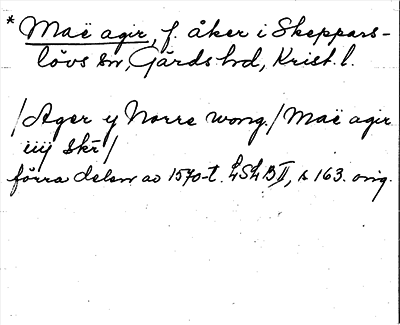 * Maë agir, f. åker i Skeppars-
lövs sn, Gärds hd, Krist. l.
/Ager y Norre wong./Maë agir
iiij skr̄/
förra delen av 1570-t. LSLB II, s 163. orig.